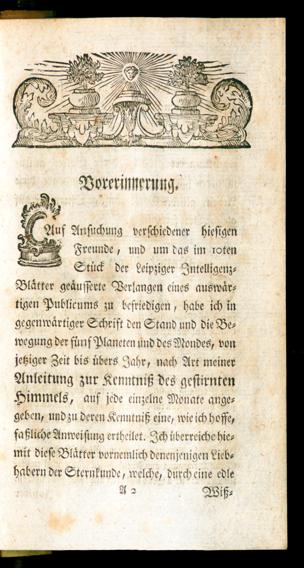 Vorerinnerung.
Auf Ansuchung verschiedener hiesigen
Freunde, und um das im 10ten
Stück der Leipziger Intelligenz-
Blätter geäusserte Verlangen eines auswär-
tigen Publicums zu befriedigen, habe ich in
gegenwärtiger Schrift den Stand und die Be-
wegung der fünf Planeten und des Mondes, von
jetziger Zeit bis übers Jahr, nach Art meiner
Anleitung zur Kenntniß des gestirnten
Himmels, auf jede einzelne Monate ange-
geben, und zu deren Kenntniß eine, wie ich hoffe,
faßliche Anweisung ertheilet. Ich überreiche hie-
mit diese Blätter vornemlich denenjenigen Lieb-
habern der Sternkunde, welche, durch eine edle
A 2 Wiß-